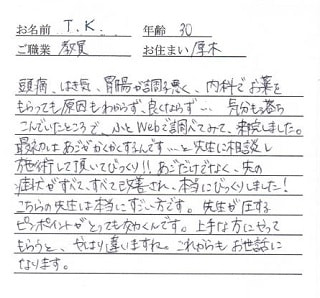 お名前 T.K. 年齢 30
ご職業 教員 お住まい 厚木
頭痛、はき気、胃腸が調子悪く、内科でお薬を
もらっても原因もわからず、良くならず… 気分も落ち
こんでいたところで、ふとWebで調べてみて、来院しました。
最初は あごがかくかくするんです…と先生に相談し
施術して頂いてびっくり!! あごだけでなく、先の
症状がすべて、すべて改善され、本当にびっくりしました!
こちらの先生は本当にすごい方です。先生が圧する
ピンポイントがとっても効くんです。上手な方にやって
もらうと、やはり違いますね。これからもお世話に
なります。